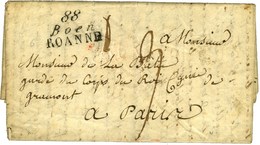 88
Boen
ROANNE
1
a Monsieur
Monsieur de La
garde du Corps du Roi Cgnie de
gramont
a Paris